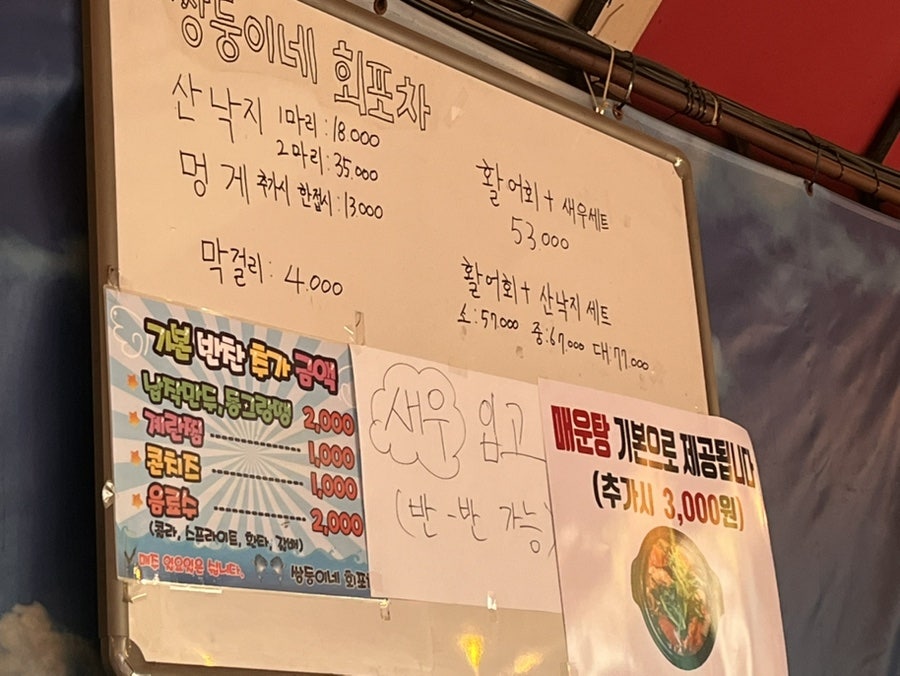 쌍둥이네 회포차
산 낙지 1마리 : 18.000
2마리 : 35.000
멍 게 추가시 한접시 : 13000
막걸리 : 4.000
활어회 + 새우세트
53.000
활어회 + 산낙지 세트
소 : 57.000 중 : 67.000 대 : 77.000
기본 반찬 추가 금액
납작만두, 동그랑땡 2,000
계란찜 1,000
콘치즈 1,000
음료수 2,000
(콜라, 스프라이트, 환타, 갈배)
매주 월요일은 쉽니다.
쌍둥이네 회포
새우 입고
(반-반 가능)
매운탕 기본으로 제공됩니다
(추가시 3,000원)